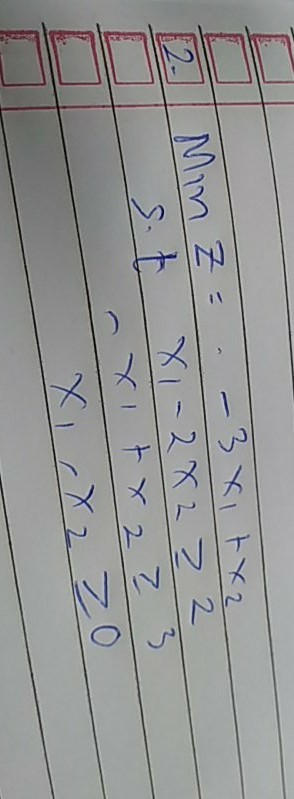 2. Min Z = -3x₁ + x₂
s.t x₁ - 2x₂ ≥ 2
- x₁ + x₂ ≥ 3
x₁, x₂ ≥ 0